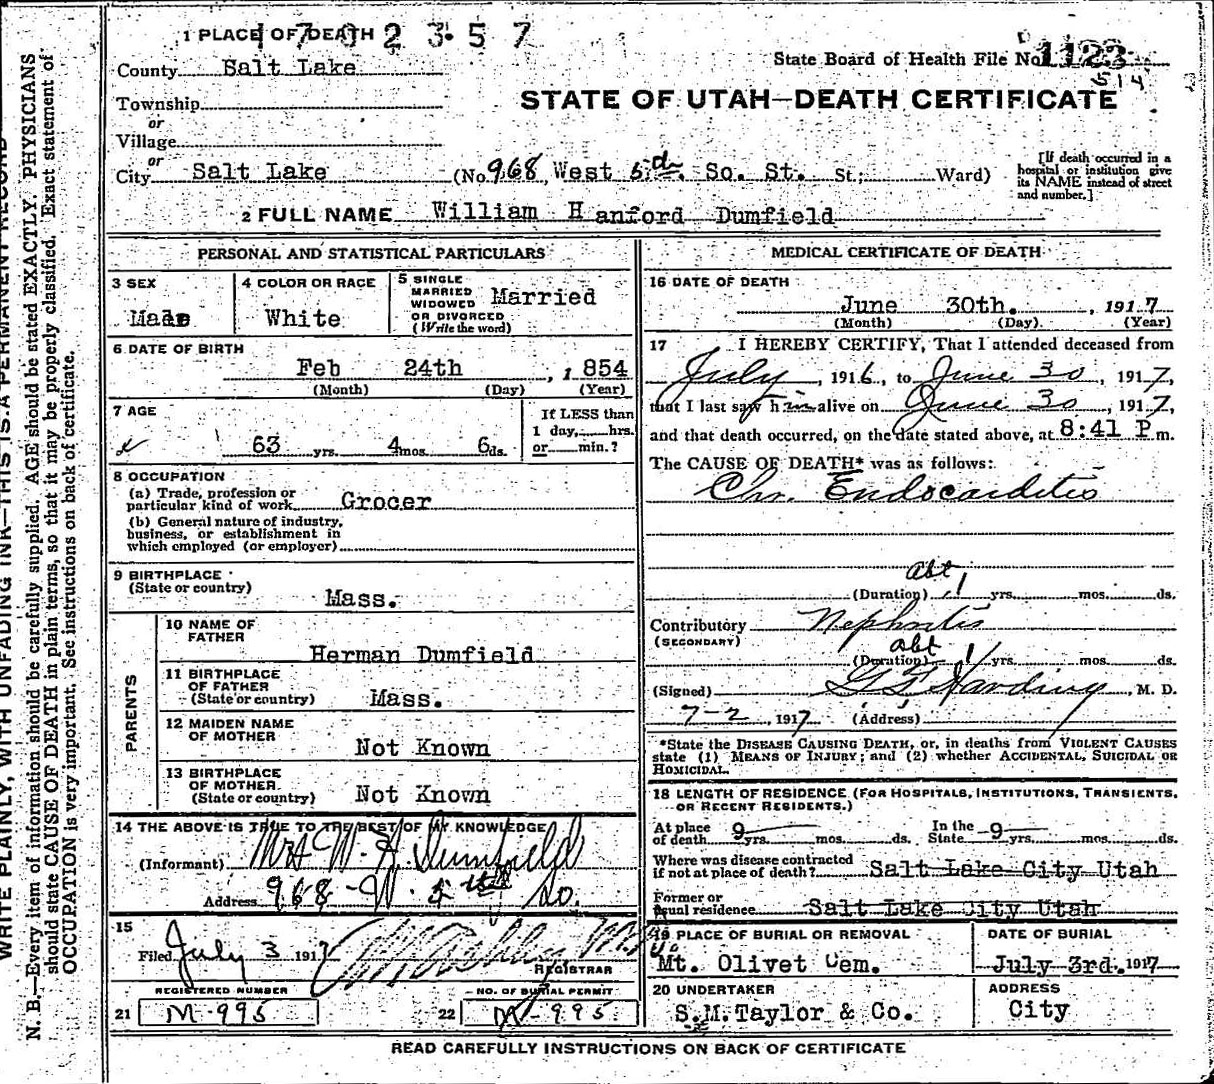 1 PLACE OF DEATH 1702357
State Board of Health File No. 1123
514
County Salt Lake
STATE OF UTAH—DEATH CERTIFICATE
Township
or
Village
or
City Salt Lake (No. 968 West So. St. St.; Ward)
[If death occurred in a
hospital or institution give
its NAME instead of street
and number.]
2 FULL NAME William Hanford Dumfield
PERSONAL AND STATISTICAL PARTICULARS
3 SEX
Male
4 COLOR OR RACE
White
5 SINGLE
MARRIED
WIDOWED
OR DIVORCED
(Write the word)
Married
6 DATE OF BIRTH
Feb 24th, 1854
(Month) (Day) (Year)
7 AGE
63 yrs. 4 mos. 6 ds.
If LESS than
1 day, hrs.
or min.?
8 OCCUPATION
(a) Trade, profession or
particular kind of work Grocer
(b) General nature of industry,
business, or establishment in
which employed (or employer)
9 BIRTHPLACE
(State or country)
Mass.
PARENTS
10 NAME OF
FATHER
Herman Dumfield
11 BIRTHPLACE
OF FATHER
(State or country) Mass.
12 MAIDEN NAME
OF MOTHER Not Known
13 BIRTHPLACE
OF MOTHER
(State or country) Not Known
14 THE ABOVE IS TRUE TO THE BEST OF MY KNOWLEDGE
(Informant) Mrs W. H. Dumfield
Address 968 - W. So.
15
Filed July 3 1917
REGISTRAR
REGISTERED NUMBER
21 M-995
NO. OF BURIAL PERMIT
22 M-995
MEDICAL CERTIFICATE OF DEATH
16 DATE OF DEATH
June 30th., 1917
(Month) (Day) (Year)
17 I HEREBY CERTIFY, That I attended deceased from
July, 1916, to June 30, 1917,
that I last saw him alive on June 30, 1917,
and that death occurred, on the date stated above, at 8:41 P m.
The CAUSE OF DEATH* was as follows:
Chr. Endocarditis
abt
(Duration) 1 yrs. mos. ds.
Contributory Nephritis
(SECONDARY)
abt
(Duration) 1 yrs. mos. ds.
(Signed) Harding, M. D.
7-2, 1917 (Address)
*State the DISEASE CAUSING DEATH, or, in deaths from VIOLENT CAUSES
state (1) MEANS OF INJURY; and (2) whether ACCIDENTAL, SUICIDAL OR
HOMICIDAL.
18 LENGTH OF RESIDENCE (FOR HOSPITALS, INSTITUTIONS, TRANSIENTS,
OR RECENT RESIDENTS.)
At place
of death 9 yrs. mos. ds. In the
State 9 yrs. mos. ds.
Where was disease contracted
if not at place of death? Salt Lake City Utah
Former or
usual residence Salt Lake City Utah
19 PLACE OF BURIAL OR REMOVAL
Mt. Olivet Cem.
DATE OF BURIAL
July 3rd. 1917
20 UNDERTAKER
S.M. Taylor & Co.
ADDRESS
City
READ CAREFULLY INSTRUCTIONS ON BACK OF CERTIFICATE
WRITE PLAINLY, WITH UNFADING INK—THIS IS A PERMANENT RECORD
N. B.—Every item of information should be carefully supplied. AGE should be stated EXACTLY. PHYSICIANS
should state CAUSE OF DEATH in plain terms, so that it may be properly classified. Exact statement of
OCCUPATION is very important. See instructions on back of certificate.